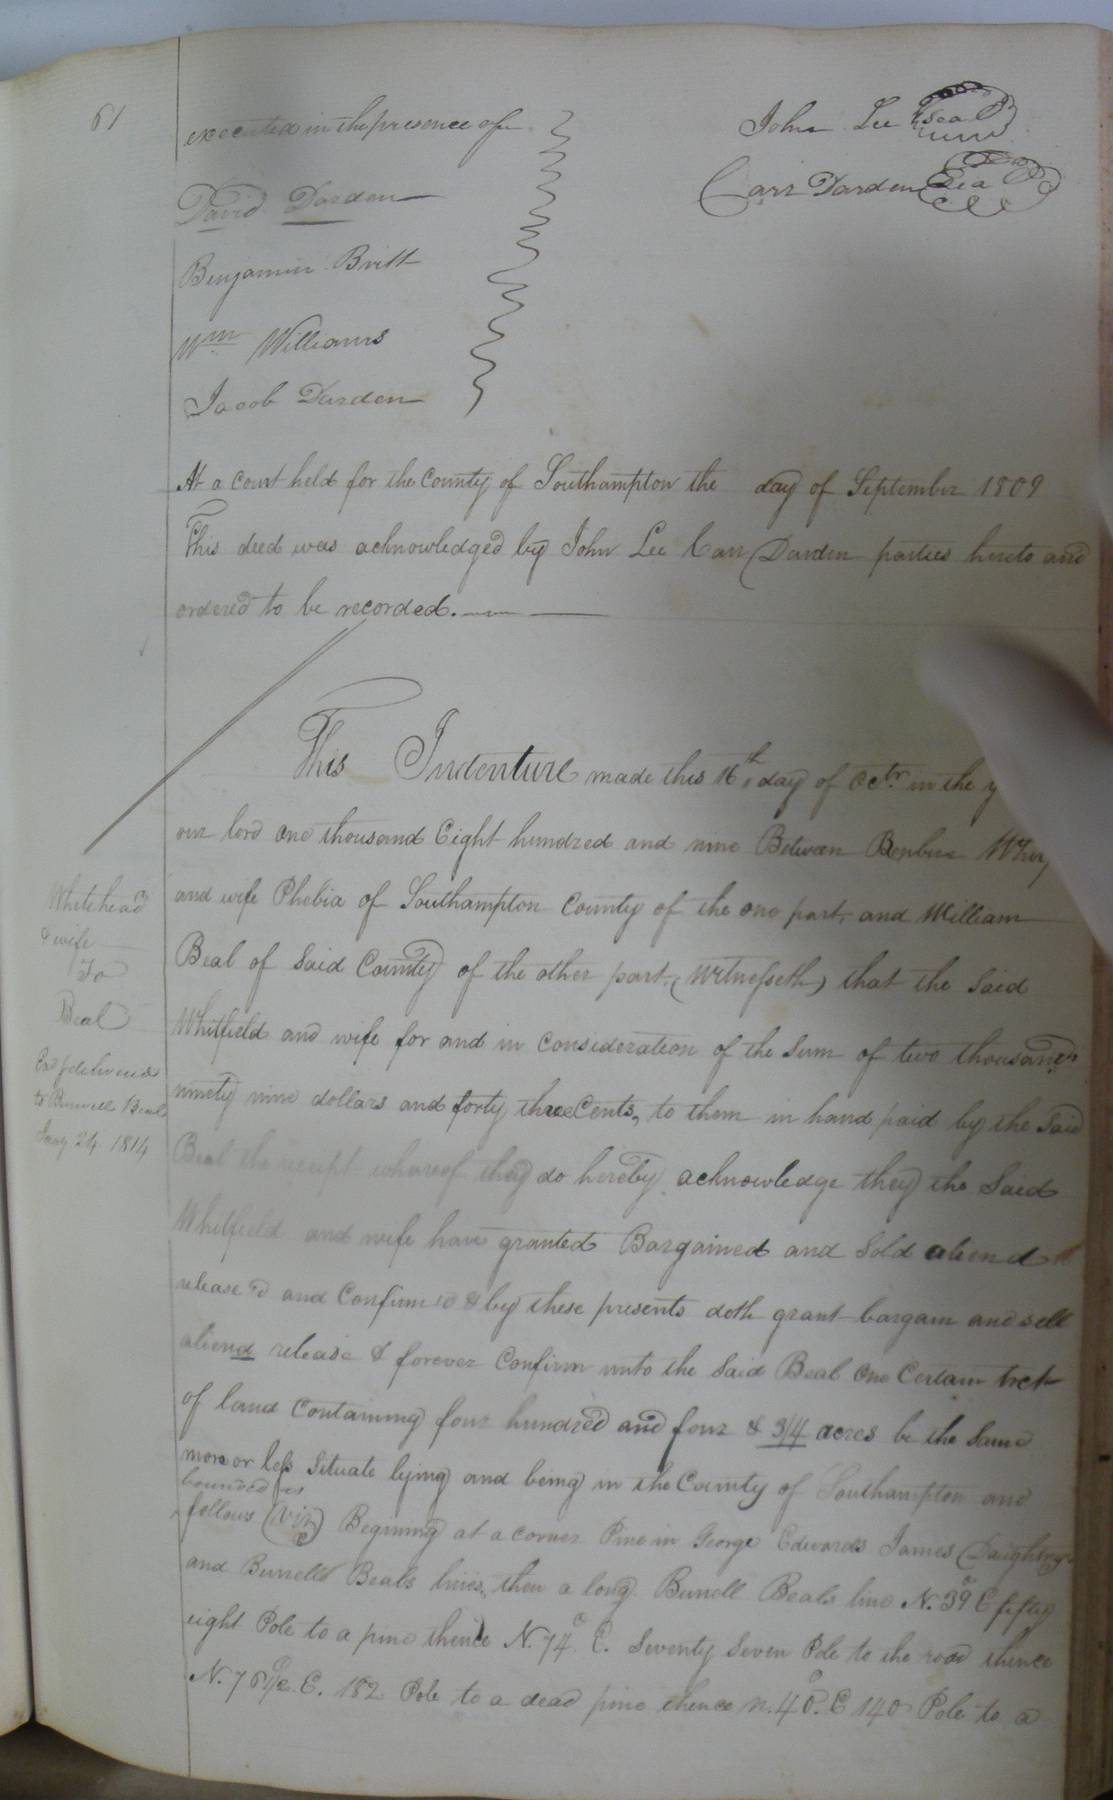 61
executed in the presence of
John Lee Seal
Carr Darden Sea
David Darden
Benjamin Britt
Wm Williams
Jacob Darden
At a Court held for the County of Southampton the day of September 1809
This deed was acknowledged by John Lee Carr Darden parties hereto and
ordered to be recorded.
This Indenture made this 16th day of Octr in the
our lord one thousand Eight hundred and nine Between
and wife Phebia of Southampton County of the one part, and William
Beal of Said County of the other part (Witnesseth) that the Said
Whitfield and wife for and in Consideration of the Sum of two thousand
ninety nine dollars and forty three Cents, to them in hand paid by the Said
Beal the receipt whereof they do hereby acknowledge they the Said
Whitfield and wife have granted Bargained and Sold aliend
release'd and Confirm'd & by these presents doth grant bargain and sell
aliend release & forever Confirm unto the Said Beal One Certain tret
of land Containing four hundred and four & 3/4 acres be the Same
more or less Situate lying and being in the County of Southampton and
bounded as
follows (Viz) Begining at a corner Pine in George Edwards James Daughtry
and Burrells Beals lines, then a long Burrell Beals line N. 39° E fifty
eight Pole to a pine thence N. 74° E. Seventy Seven Pole to the road thence
N. 76 1/2 E. 182 Pole to a dead pine thence n. 40° E 140 Pole to a
Whitehead
& wife
To
Beal
Exd & delivered
to Burwell Beal
Jany 24 1814